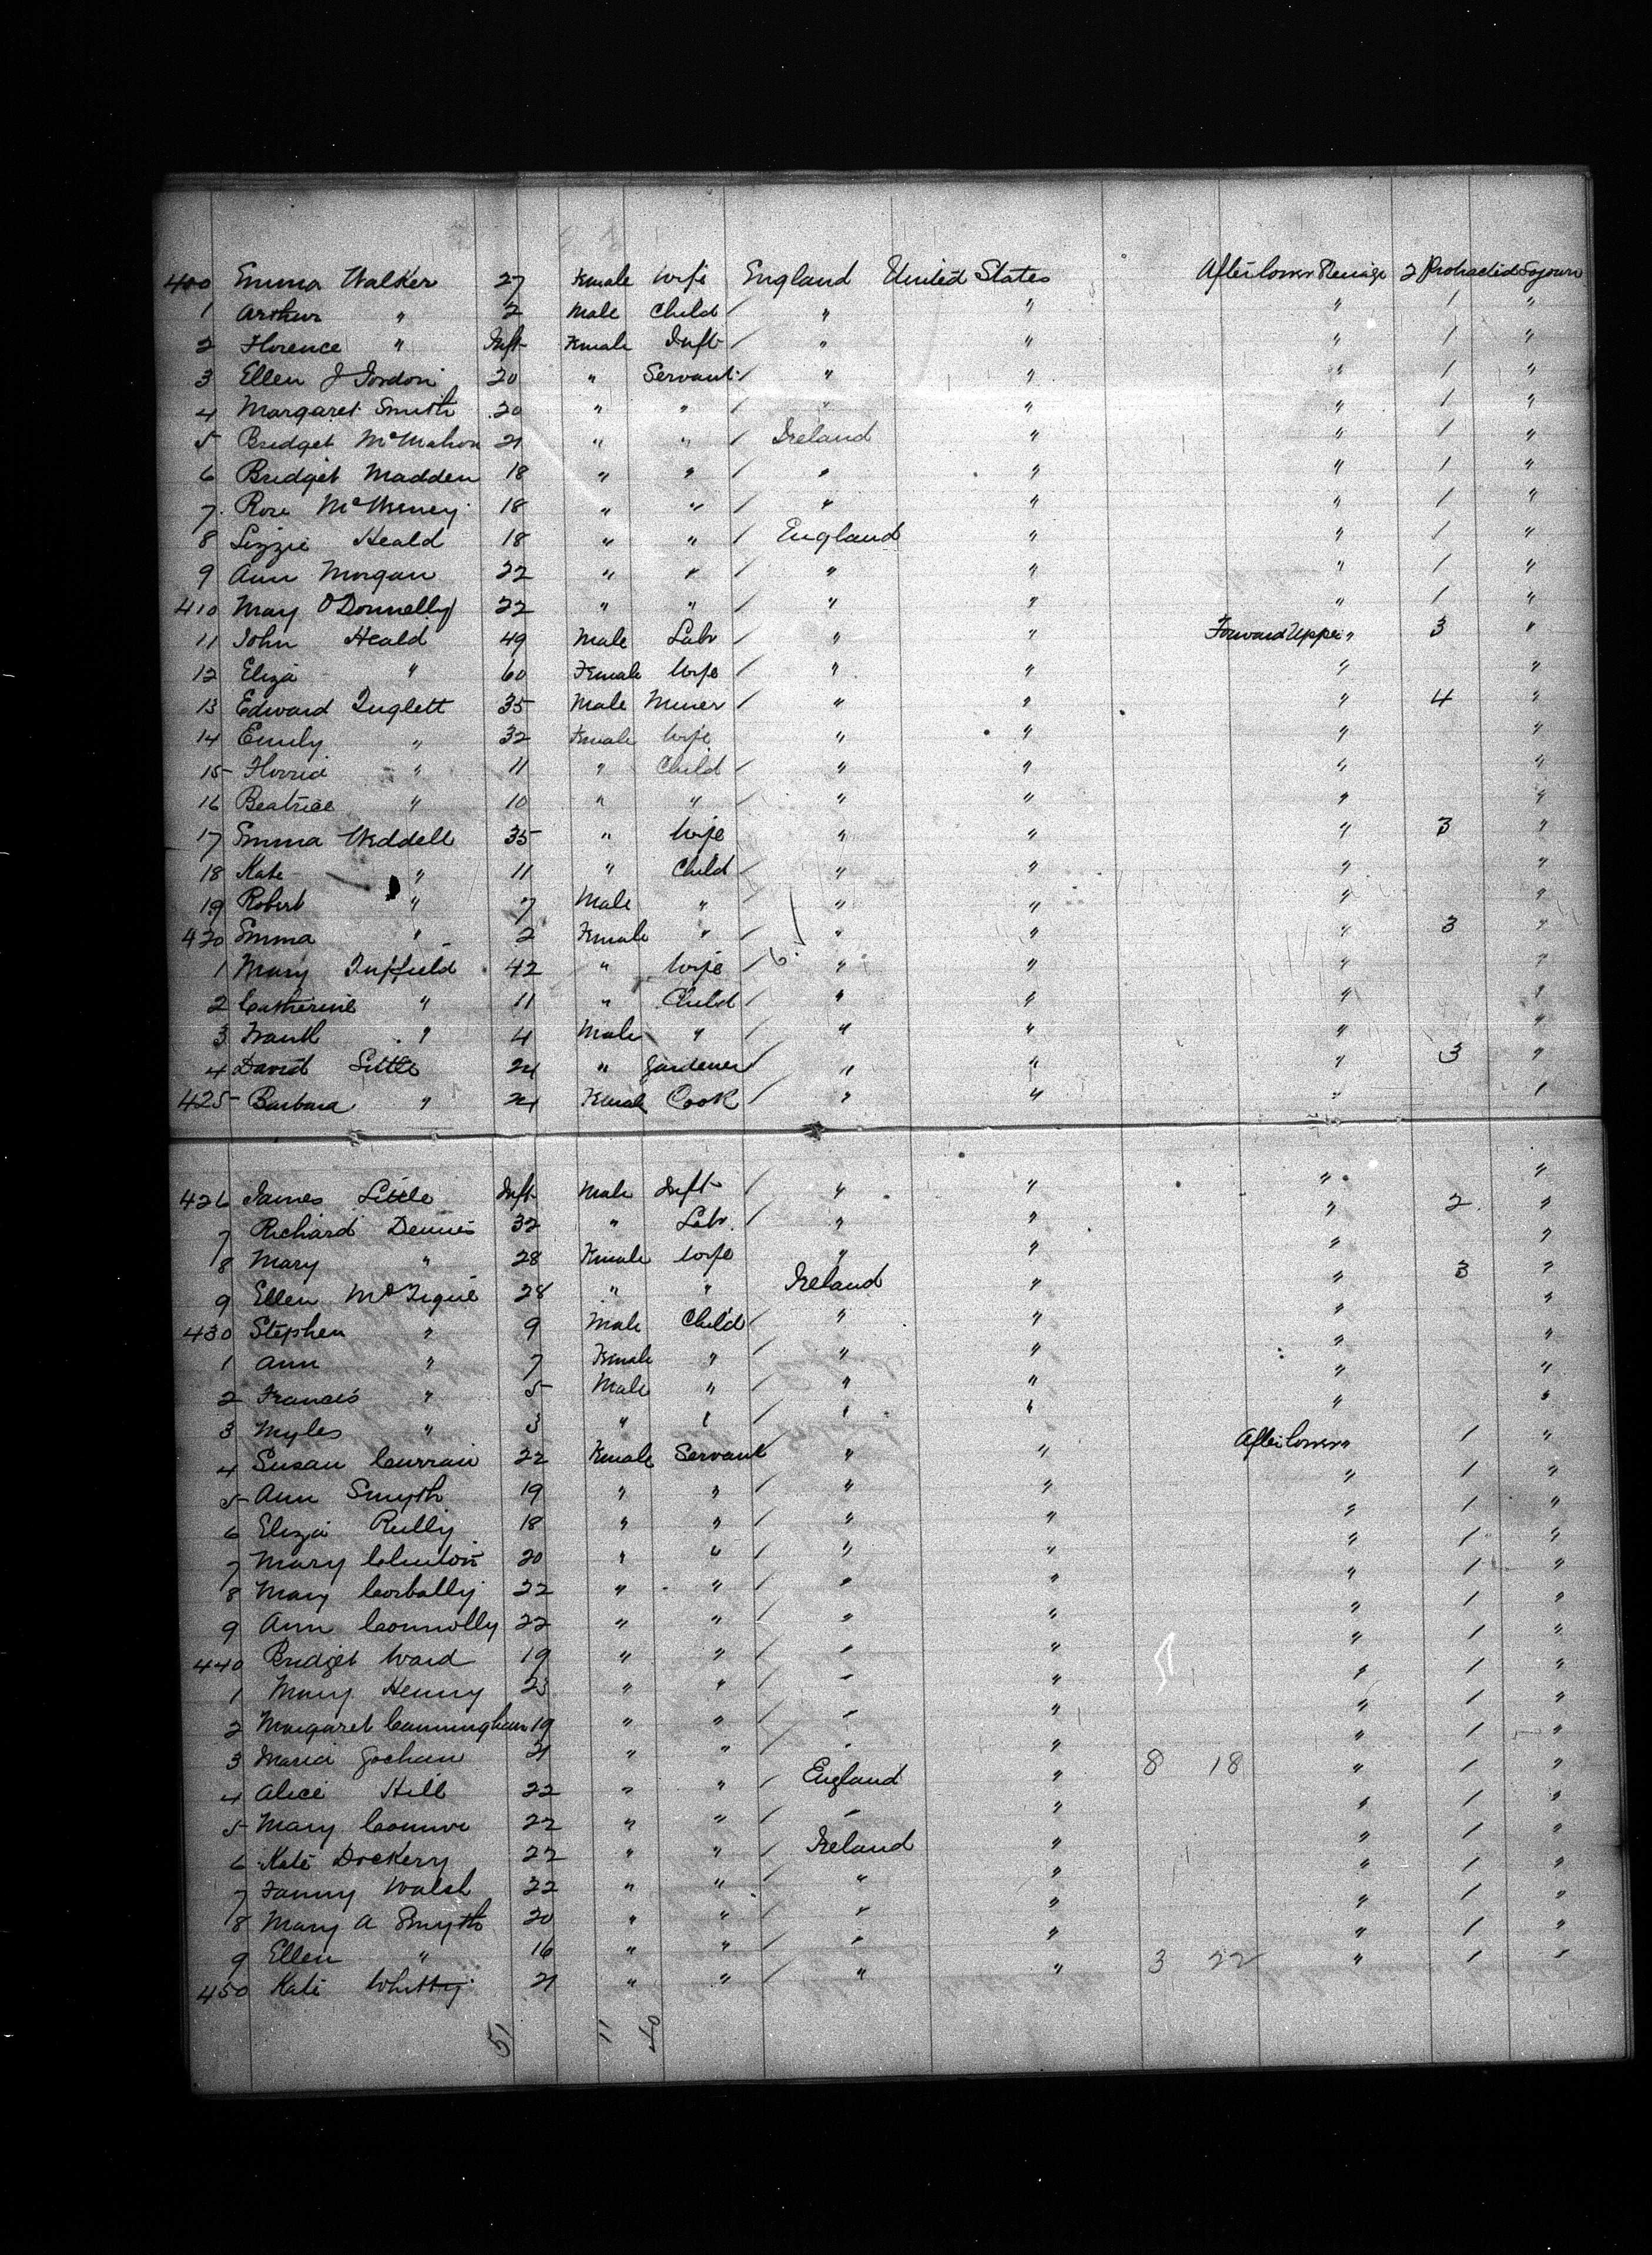 400 Emma Walker 27 Female Wife England United States After Lower Steerage 2 Protracted Sojourn
1 Arthur " 2 Male Child / " " " 1 "
2 Florence " Inft Female Inft / " " " 1 "
3 Ellen J Gordon 20 " Servant / " " " 1 "
4 Margaret Smith 20 " " / " " " 1 "
5 Bridget McMahon 21 " " / Ireland " " 1 "
6 Bridget Madden 18 " " / " " " 1 "
7 Rose 18 " " / " " " 1 "
8 Lizzie Heald 18 " " / England " " 1 "
9 Ann Morgan 22 " " / " " " 1 "
410 Mary O'Donnelly 22 " " / " " " 1 "
11 John Heald 49 Male Labr / " " Forward Upper " 3 "
12 Eliza " 60 Female Wife / " " " "
13 Edward Inglett 35 Male Miner / " " " 4 "
14 Emily " 32 Female Wife " " " "
15 " 11 " Child / " " " "
16 Beatrice " 10 " " / " " " "
17 Emma Weddell 35 " Wife " " " 3 "
18 Kate " 11 " Child / " " " "
19 Robert " 7 Male " / " " " "
420 Emma " 2 Female " / " " " 3 "
1 Mary 42 " Wife / " " " "
2 Catherine " 11 " Child / " " " "
3 Frank " 4 Male " / " " " "
4 David Little 24 " Gardener / " " " 3 "
425 Barbara " 24 Female Cook / " " " "
426 James Little Inft Male Inft / " " " "
7 Richard Dennis 32 " Labr. / " " " 2 "
8 Mary " 28 Female Wife " " " "
9 Ellen McTigue 28 " " Ireland " " 3 "
430 Stephen " 9 Male Child / " " " "
1 Ann " 7 Female " / " " " "
2 Francis " 5 Male " / " " " "
3 Myles " 3 " " / " " " "
4 Susan Curran 22 Female Servant " " After Lower " 1 "
5 Ann Smyth 19 " " / " " " 1 "
6 Eliza Reilly 18 " " / " " " 1 "
7 Mary Clinton 20 " " / " " " 1 "
8 Mary Corbally 22 " " / " " " 1 "
9 Ann Connolly 22 " " / " " " 1 "
440 Bridget Ward 19 " " / " " " 1 "
1 Mary Henry 23 " " / " " " 1 "
2 Margaret Cunningham 19 " " / " " " 1 "
3 Maria 21 " " / " " 8 18 " 1 "
4 Alice Hill 22 " " / England " " 1 "
5 Mary 22 " " / " " " 1 "
6 Kate Dockery 22 " " / Ireland " " 1 "
7 Fanny Walsh 22 " " / " " " 1 "
8 Mary A Smyth 20 " " / " " " 1 "
9 Ellen " 16 " " / " " 3 22 " 1 "
450 Kate Whitty 21 " " / " "
51 11 40